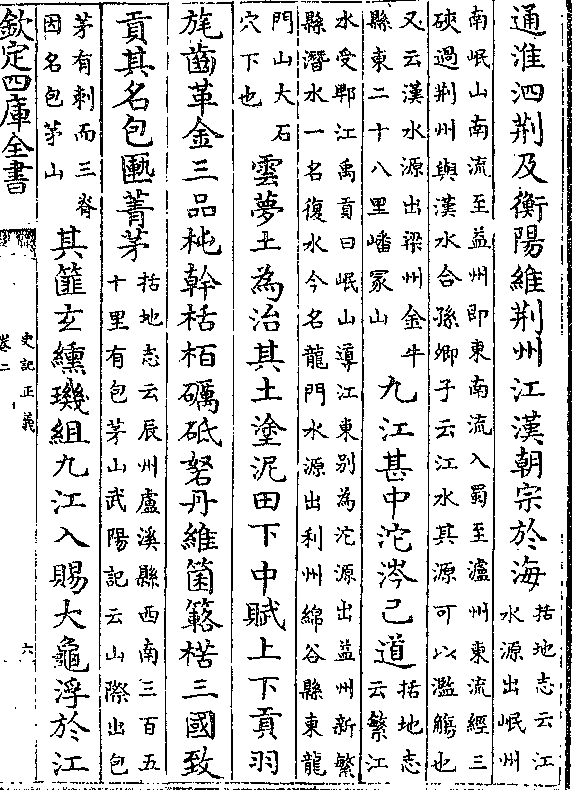 通淮泗荆及衡陽維荆州江漢朝宗於海
括地志云江
水源出岷州
南岷山南流至益州即東南流入蜀至瀘州東流經三
硤過荆州與漢水合孫卿子云江水其源可以濫觴也
又云漢水源出梁州金牛
縣東二十八里嶓冡山
九江甚中沱涔已道
括地志
云繁江
水受郫江禹貢曰岷山導江東别為沱源出益州新繁
縣潛水一名復水今名龍門水源出利州綿谷縣東龍
門山大石
穴下也
雲夢土為治其土塗泥田下中賦上下貢羽
旄齒革金三品杶幹栝栢礪砥砮丹維箘簬楛三國致
貢其名包匭菁茅
括地志云辰州盧溪縣西南三百五
十里有包茅山武陽記云山際出包
茅有刺而三脊
因名包茅山
其篚玄纁璣組九江入賜大龜浮於江
欽定四庫全書
史記正義
卷二
六